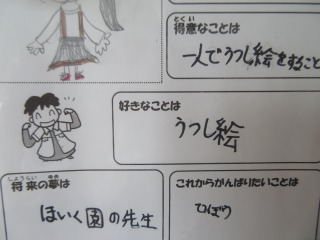 とくい
得意なことは
一人でうつし絵をすること
好きなことは
うつし絵
しょうらい ゆめ
将来の夢は
ほいく園の先生
これからがんばりたいことは
ひぼう